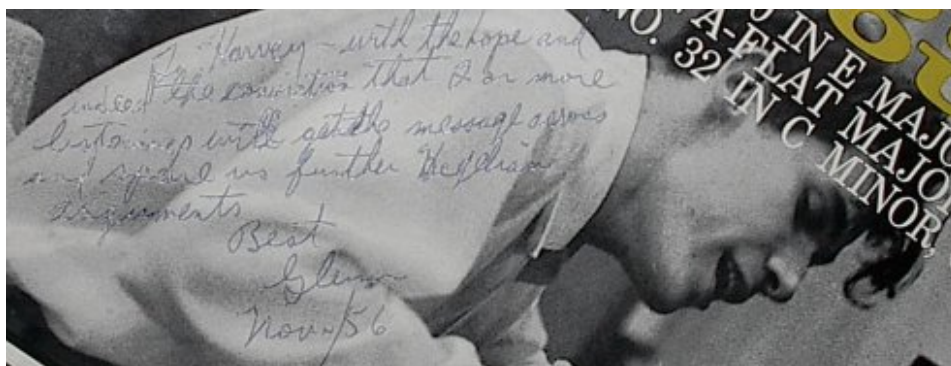 To Harvey - with the hope and
indeed the conviction that 2 or more
listenings will get the message across
and spare us further Hegelian
arguments
Best
Glenn
Nov/56
O IN E MAJO
A-FLAT MAJO
NO. 32 IN C MINOR,